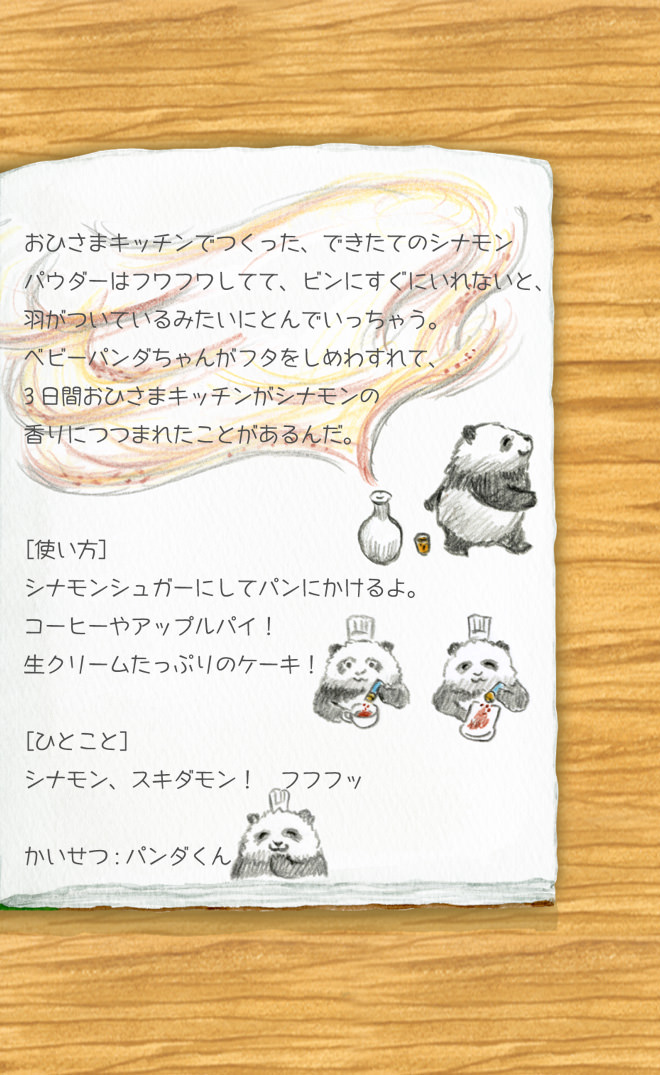 おひさまキッチンでつくった、できたてのシナモン
パウダーはフワフワしてて、ビンにすぐにいれないと、
羽がついているみたいにとんでいっちゃう。
ベビーパンダちゃんがフタをしめわすれて、
3日間おひさまキッチンがシナモンの
香りにつつまれたことがあるんだ。
[使い方]
シナモンシュガーにしてパンにかけるよ。
コーヒーやアップルパイ！
生クリームたっぷりのケーキ！
[ひとこと]
シナモン、スキダモン！　フフフッ
かいせつ：パンダくん